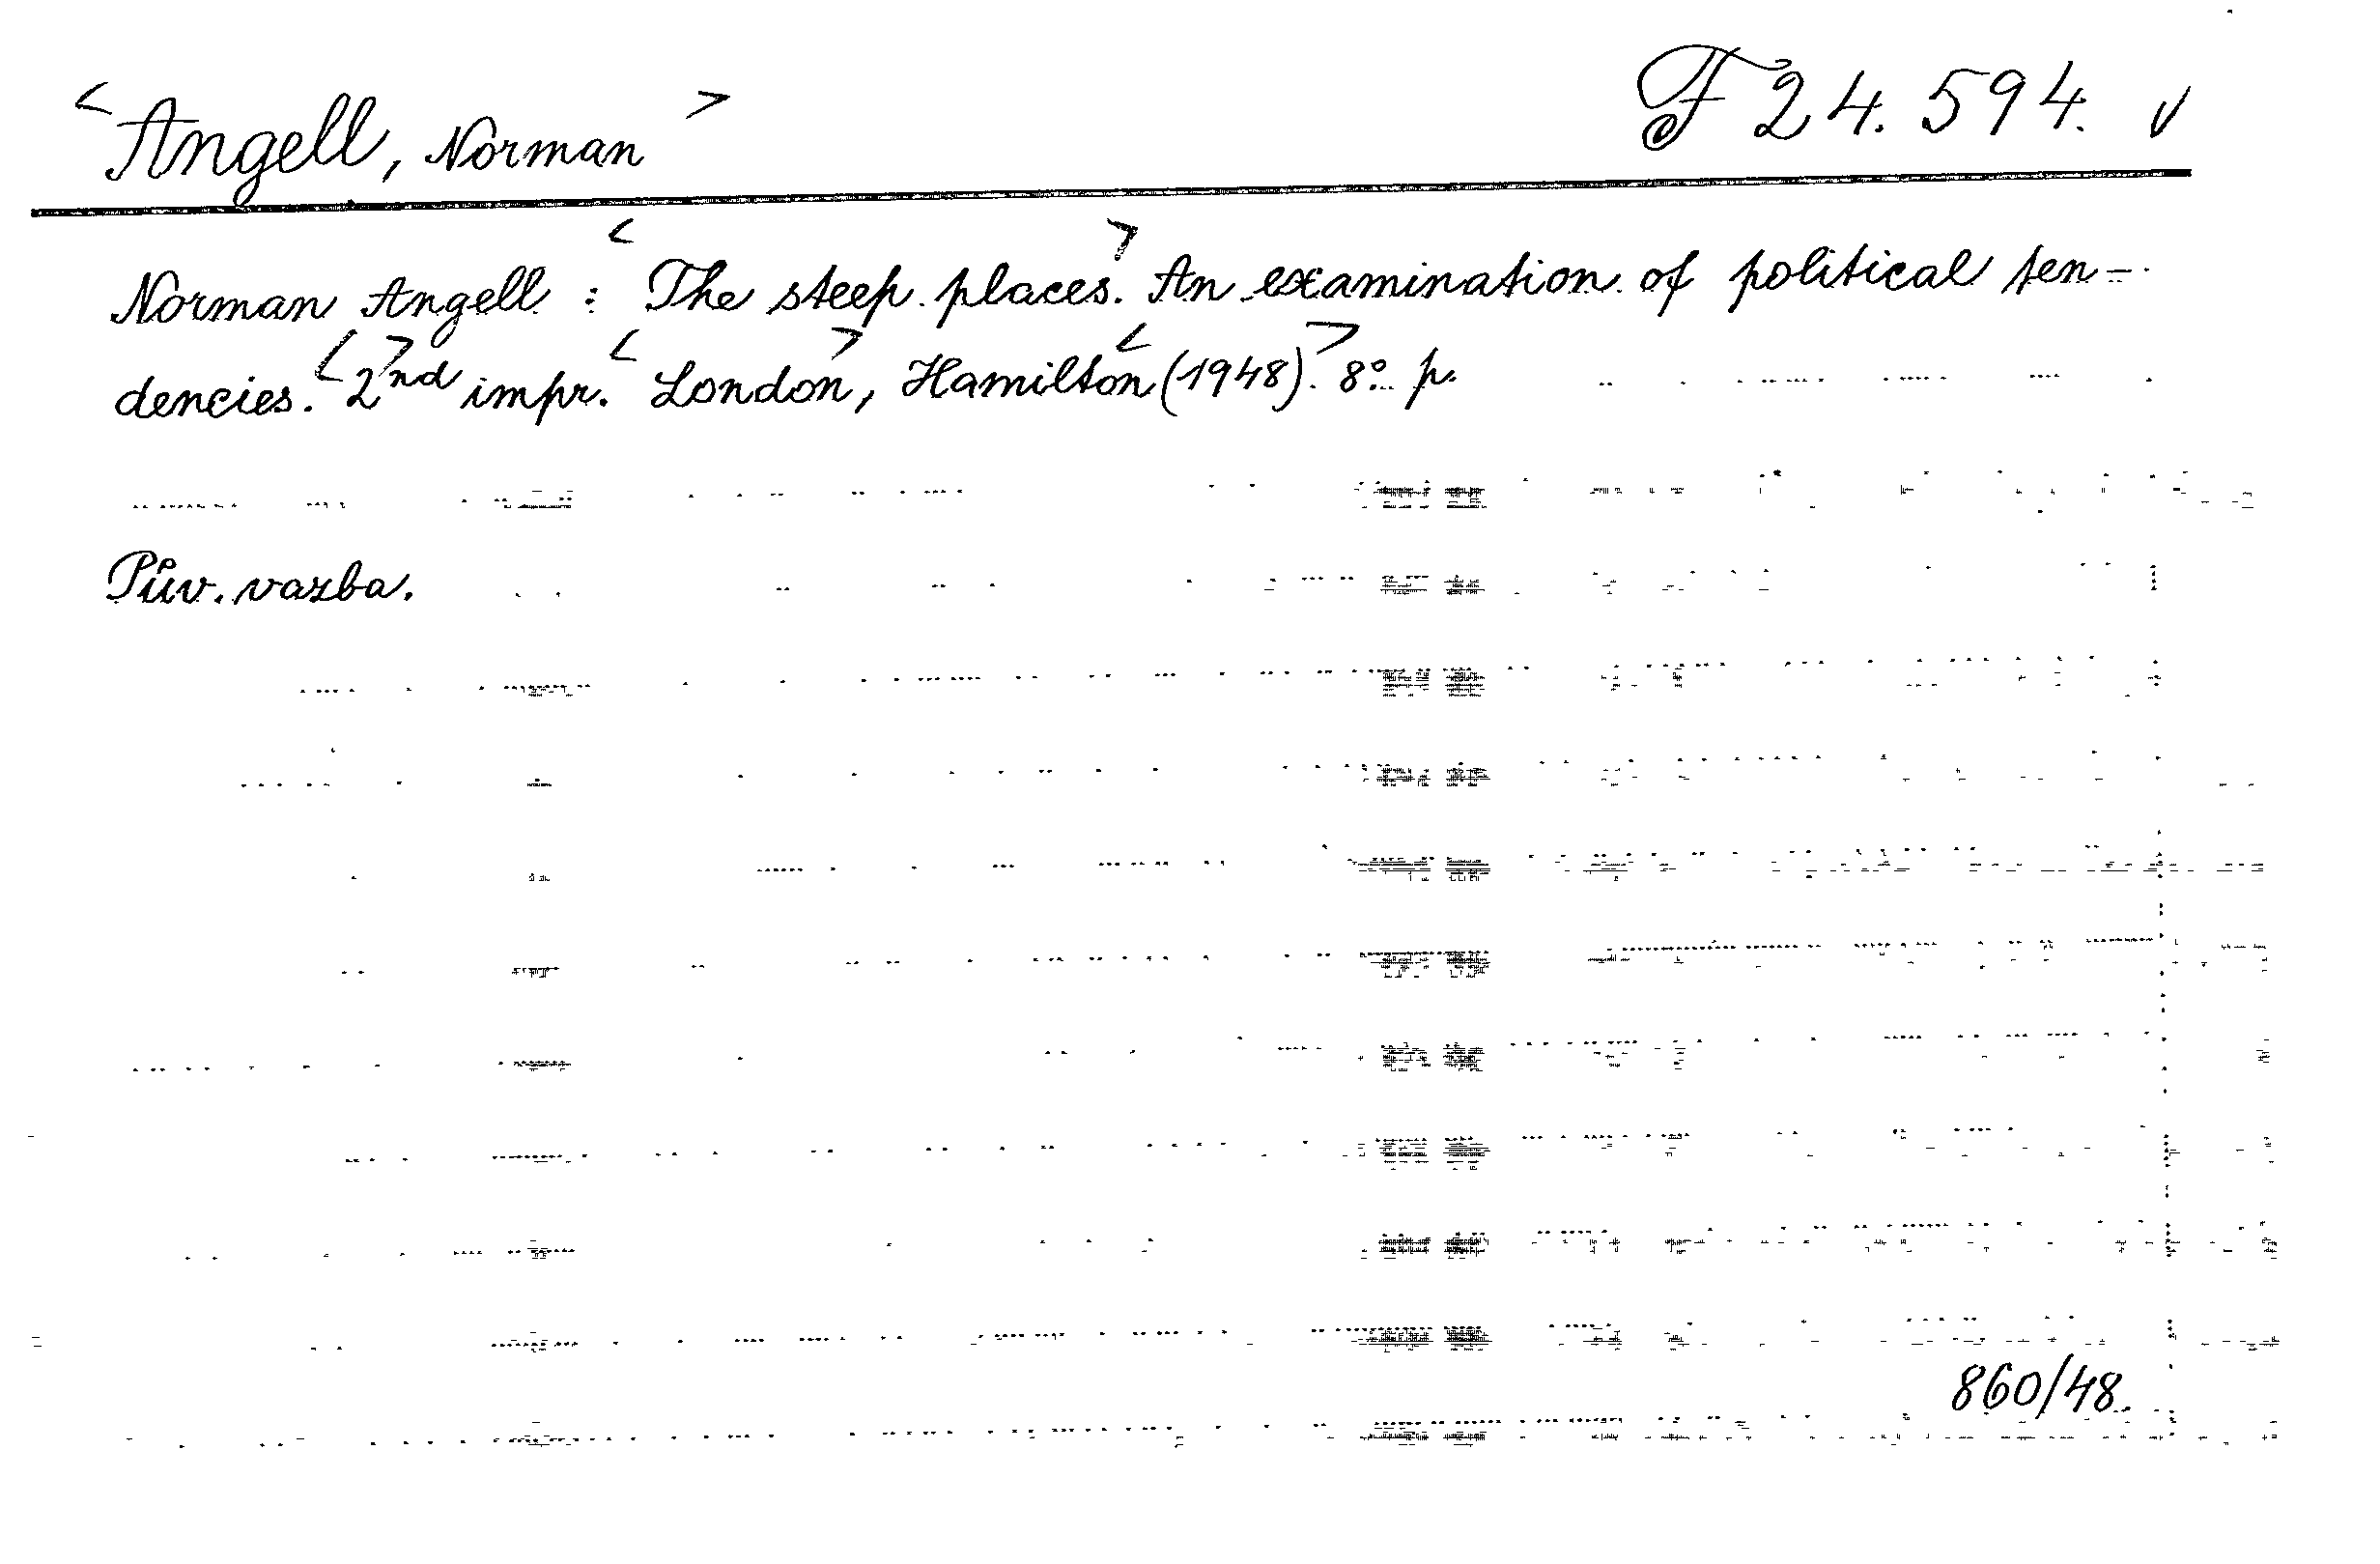 <Angell, Norman> F 24.594. v
Norman Angell : <The steep places>. An examination of political ten-
dencies. <2>nd impr. <London>, Hamilton <(1948)>. 8° p.
Pův. vazba.
860/48.